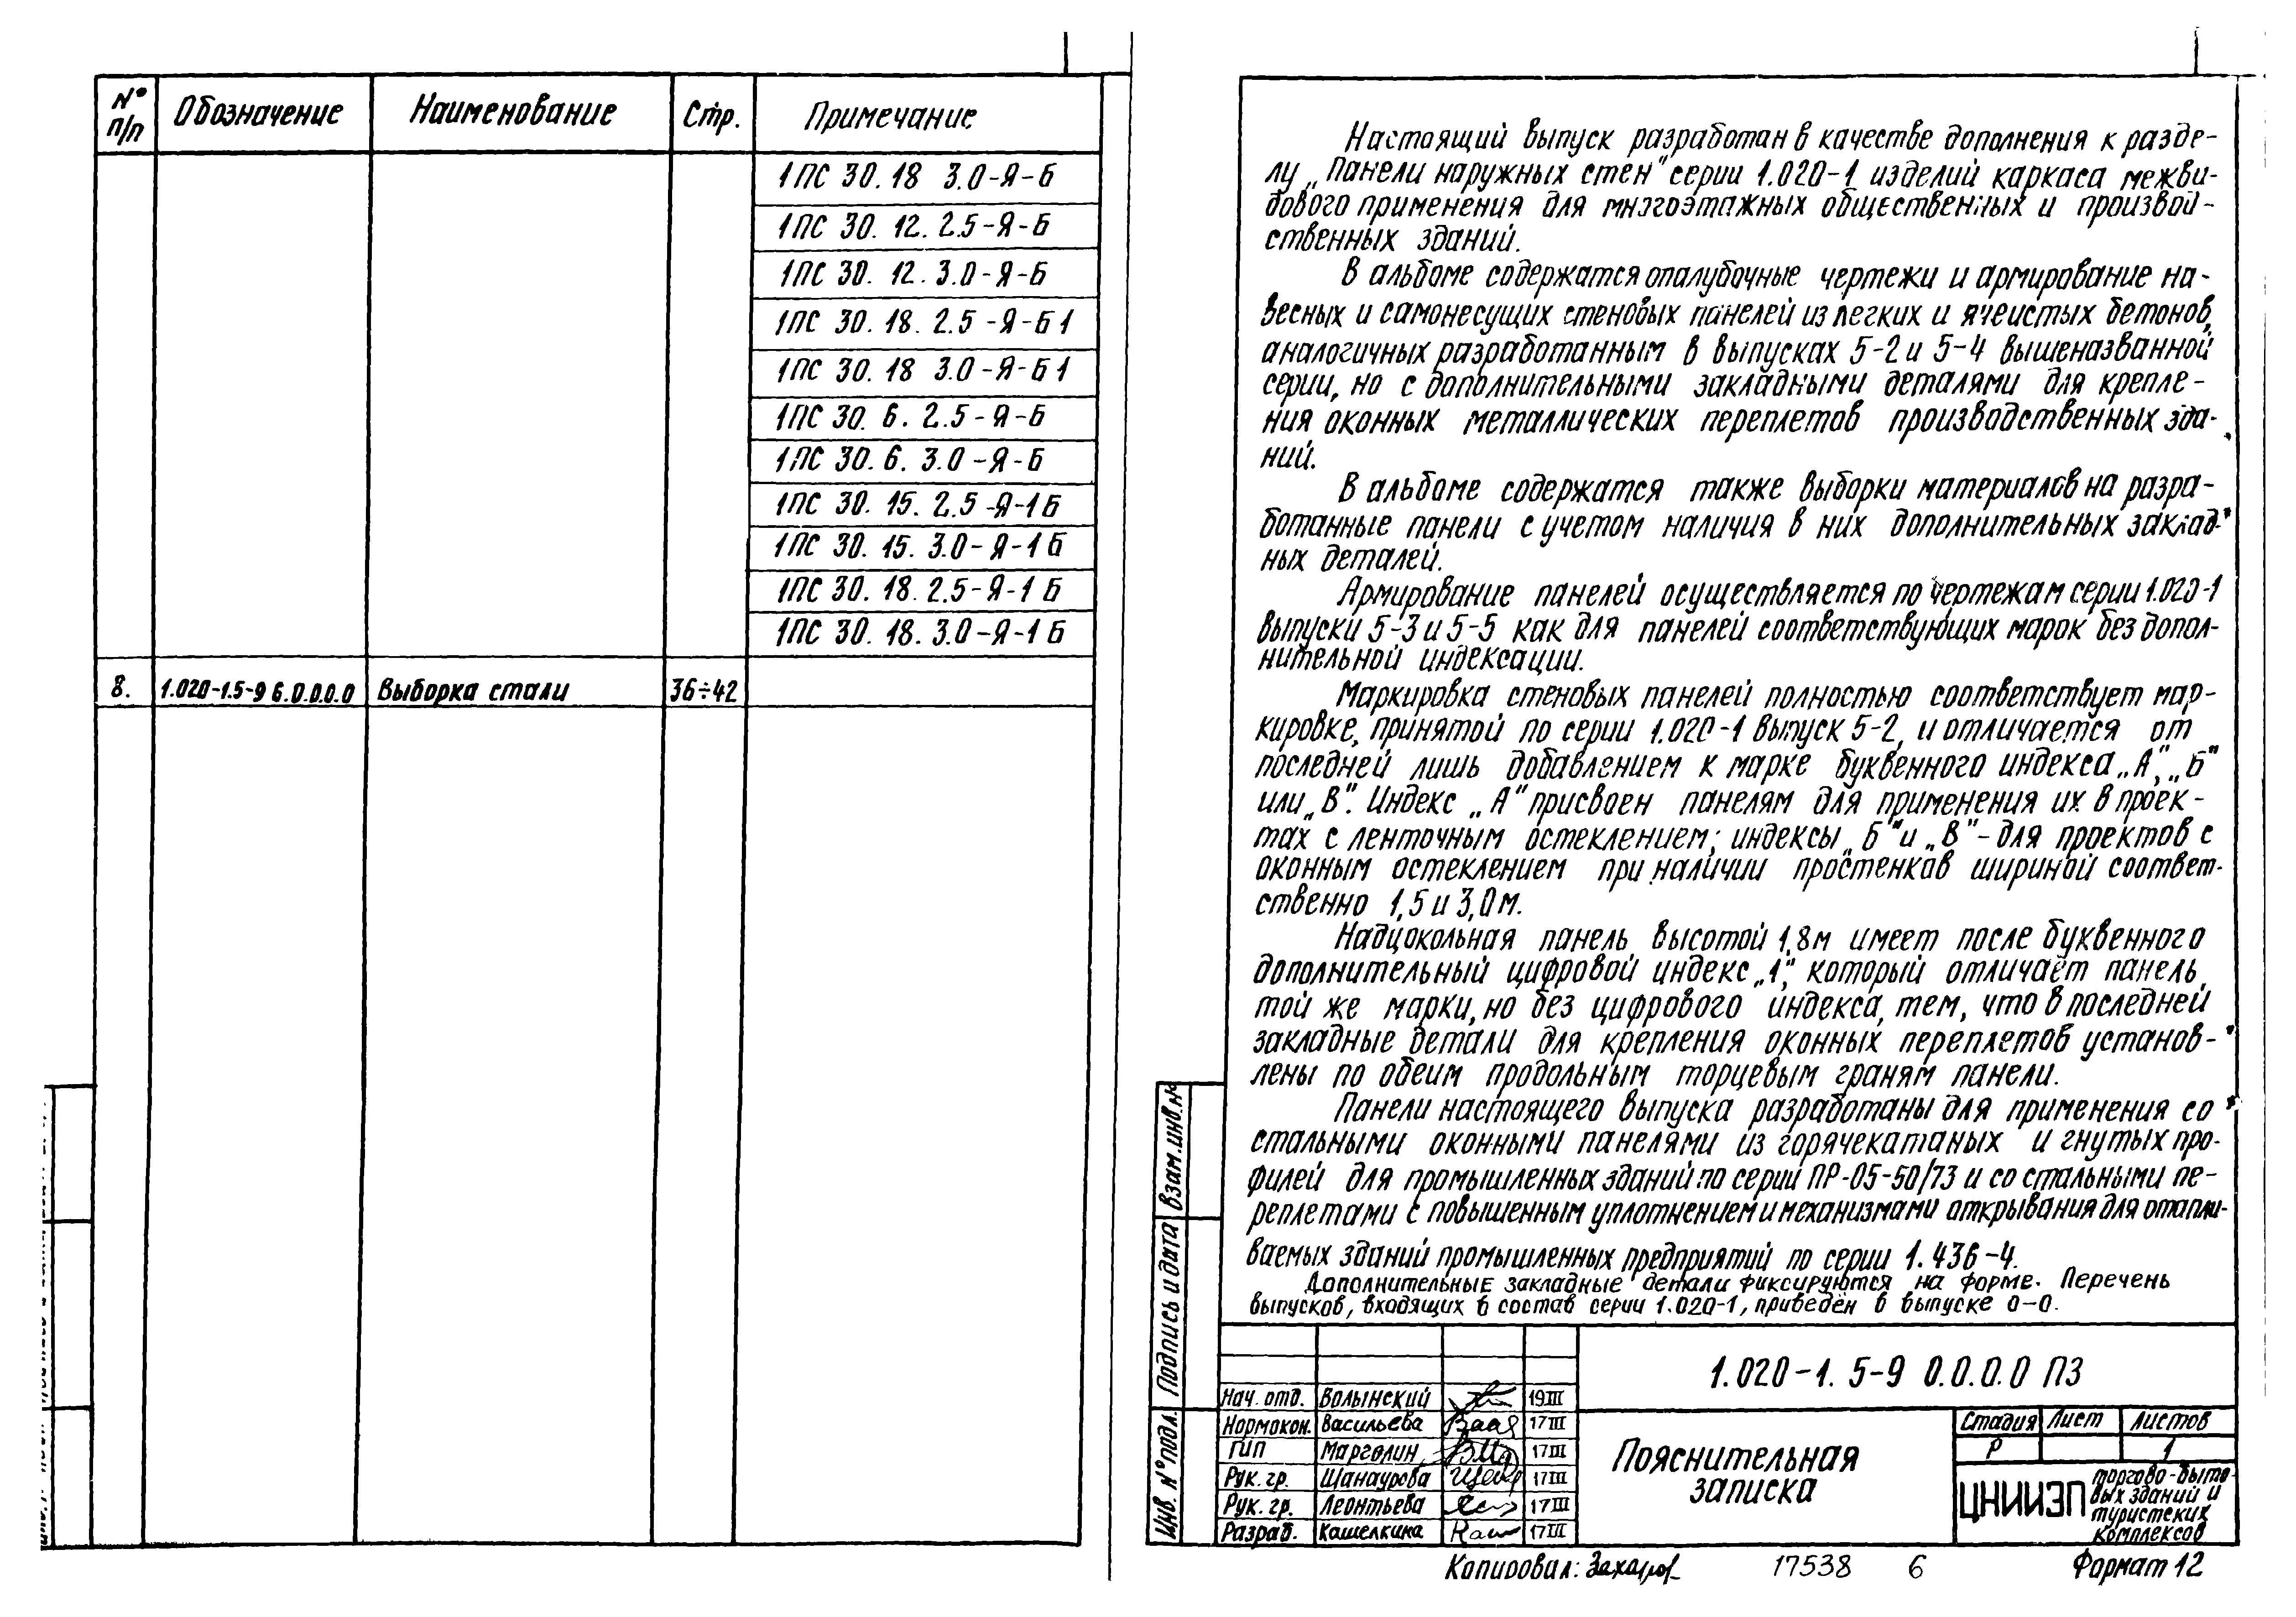 № п/п Обозначение Наименование Стр. Примечание
1ПС 30.18 3.0-Я-Б
1ПС 30. 12. 2.5-Я-Б
1ПС 30. 12. 3.0-Я-Б
1ПС 30. 18. 2.5-Я-Б1
1ПС 30. 18 3.0-Я-Б1
1ПС 30. 6. 2.5-Я-Б
1ПС 30. 6. 3.0-Я-Б
1ПС 30. 15. 2.5-Я-1Б
1ПС 30. 15. 3.0-Я-1Б
1ПС 30. 18. 2.5-Я-1Б
1ПС 30. 18. 3.0-Я-1Б
8. 1.020-1.5-9 6.0.0.0.0 Выборка стали 36÷42
Настоящий выпуск разработан в качестве дополнения к разде-
лу „Панели наружных стен" серии 1.020-1 изделий каркаса межви-
дового применения для многоэтажных общественных и производ-
ственных зданий.
В альбоме содержатся опалубочные чертежи и армирование на-
весных и самонесущих стеновых панелей из легких и ячеистых бетонов,
аналогичных разработанным в выпусках 5-2 и 5-4 вышеназванной
серии, но с дополнительными закладными деталями для крепле-
ния оконных металлических переплетов производственных зда-
ний.
В альбоме содержатся также выборки материалов на разра-
ботанные панели с учетом наличия в них дополнительных заклад-
ных деталей.
Армирование панелей осуществляется по чертежам серии 1.020-1
выпуски 5-3 и 5-5 как для панелей соответствующих марок без допол-
нительной индексации.
Маркировка стеновых панелей полностью соответствует мар-
кировке, принятой по серии 1.020-1 выпуск 5-2, и отличается от
последней лишь добавлением к марке буквенного индекса „А", „Б"
или „В". Индекс „А" присвоен панелям для применения их в проек-
тах с ленточным остеклением; индексы „Б" и „В" - для проектов с
оконным остеклением при наличии простенков шириной соответ-
ственно 1,5 и 3,0 м.
Надцокольная панель высотой 1,8м имеет после буквенного
дополнительный цифровой индекс „1", который отличает панель
той же марки, но без цифрового индекса, тем, что в последней
закладные детали для крепления оконных переплетов установ-
лены по обеим продольным торцевым граням панели.
Панели настоящего выпуска разработаны для применения со
стальными оконными панелями из горячекатаных и гнутых про-
филей для промышленных зданий по серии ПР-05-50/73 и со стальными пе-
реплетами с повышенным уплотнением и механизмами открывания для отапли-
ваемых зданий промышленных предприятий по серии 1.436-4.
Дополнительные закладные детали фиксируются на форме. Перечень
выпусков, входящих в состав серии 1.020-1, приведён в выпуске 0-0.
Взам. инв. №
Подпись и дата
Инв. № подл.
1.020-1. 5-9 0.0.0.0 ПЗ
Нач. отд. Волынский 19III
Нормокон. Васильева 17III
ГИП Марголин 17III
Рук. гр. Шанаурова 17III
Рук. гр. Леонтьева 17III
Разраб. Кашелкина 17III
Пояснительная
записка
Стадия Лист Листов
Р 1
ЦНИИЭП торгово-быто-
вых зданий и
туристских
комплексов
Копировал: Захаров 17538 6 Формат 12